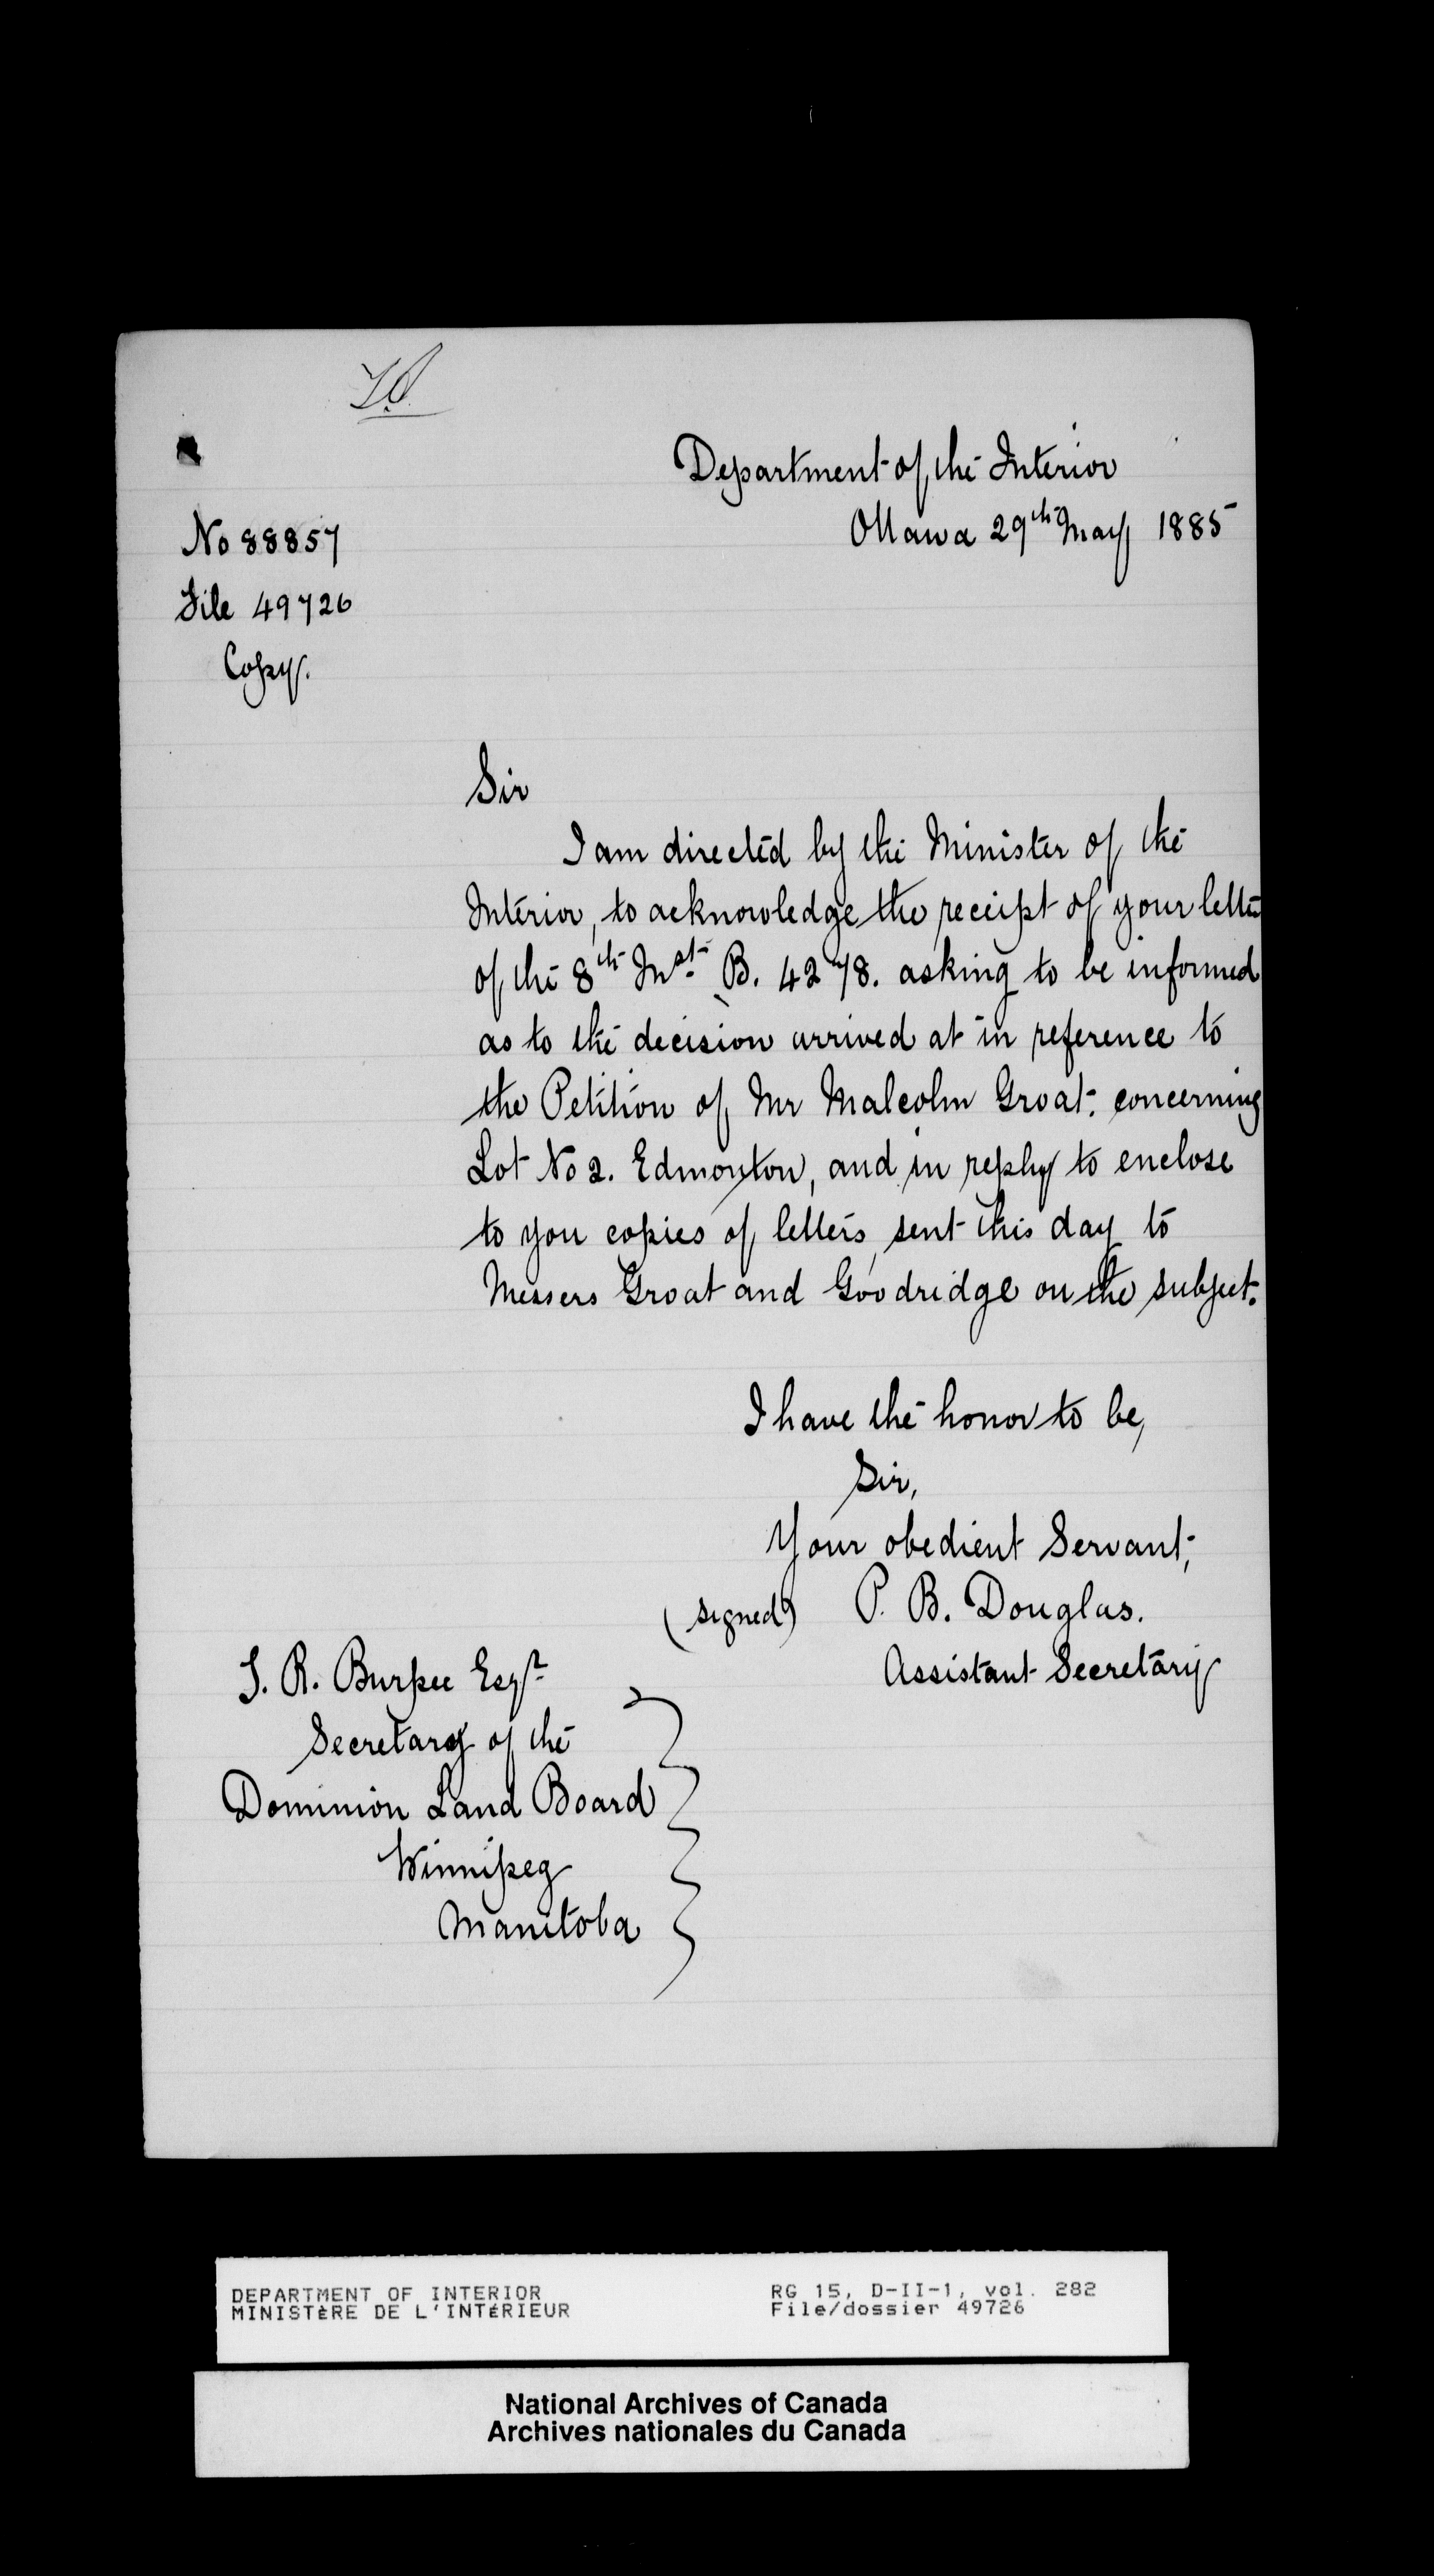 Department of the Interior
Ottawa 29th May 1885
No 88857
File 49726
Copy.
Sir
I am directed by the Minister of the
Interior, to acknowledge the receipt of your letter
of the 8th Inst. B. 4278. asking to be informed
as to the decision arrived at in reference to
the Petition of Mr Malcolm Groat. concerning
Lot No 2. Edmonton, and in reply to enclose
to you copies of letters, sent this day to
Messers Groat and Goodridge on the subject.
I have the honor to be,
Sir,
Your obedient Servant,
(signed) P. B. Douglas.
Assistant Secretary
R. Burpee Esqr
Secretary of the
Dominion Land Board
Winnipeg
Manitoba
DEPARTMENT OF INTERIOR
MINISTÈRE DE L'INTÉRIEUR
RG 15, D-II-1, vol. 282
File/dossier 49726
National Archives of Canada
Archives nationales du Canada